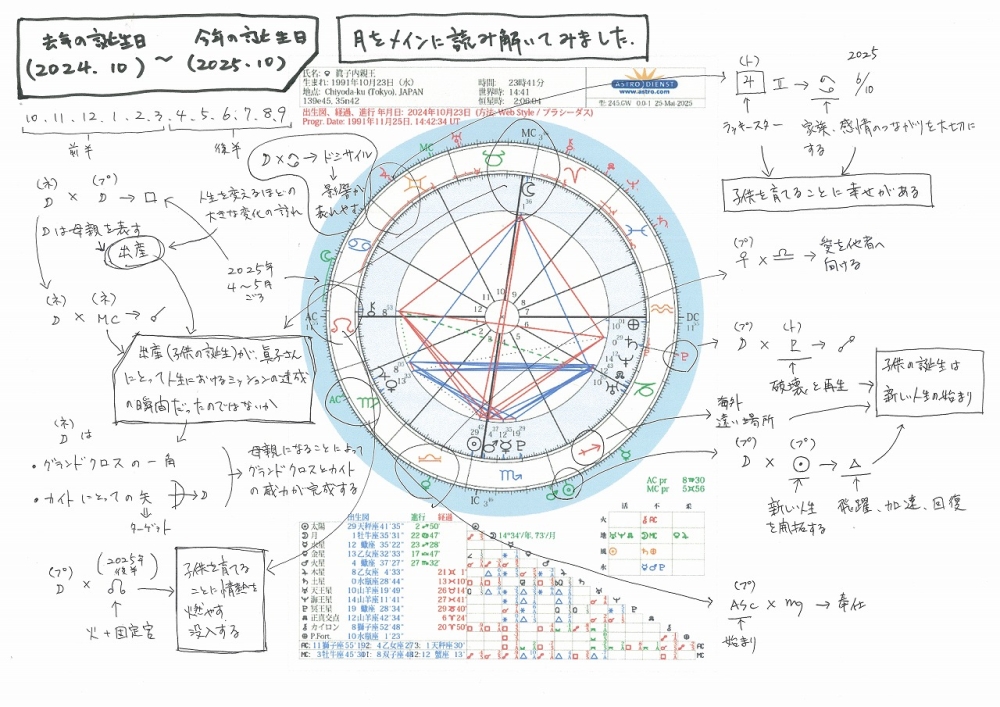 去年の誕生日
(2024. 10)
～
今年の誕生日
(2025.10)
月をメインに読み解いてみました.
10. 11. 12. 1. 2. 3. 4. 5. 6. 7. 8. 9
前半
後半
氏名: ♀ 眞子内親王
生まれ: 1991年10月23日（水）
地点: Chiyoda-ku (Tokyo), JAPAN
139e45, 35n42
時間: 23時41分
世界時: 14:41
恒星時: 2:06:04
ASTRO DIENST
www.astro.com
型: 245.GW 0.0-1 25-Mai 2025
出生図、経過、進行 年月日: 2024年10月23日 (方法: Web Style / プラシーダス)
Progr. Date: 1991年11月25日, 14:42:34 UT
D × ♋ → ドミサイル
影響が
表れやすい
(ネ) (プ)
D × D → □
Dは母親を表す
出産
人生を変えるほどの
大きな変化の訪れ
2025年
4～5月
ごろ
(ネ) (ネ)
D × MC → ☌
出産(子供の誕生)が、眞子さん
にとって人生におけるミッションの達成
の瞬間だったのではないか
(ネ)
Dは
・グランドクロスの一角
・カイトにとっての矢
→D
ターゲット
母親になることによって
グランドクロスとカイト
の威力が完成する
(プ) (2025年
後半)
D × ☊
火+固定宮
子供を育てる
ことに情熱を
燃やす
没入する
(ト)
♃ ♊ → ♋
2025
6/10
ラッキースター
家族、感情のつながりを大切に
する
子供を育てることに幸せがある
(プ)
♀ × ♎ → 愛を他者へ
向ける
(プ) (ト)
D × ♇ → ☍
破壊と再生
子供の誕生は
新しい人生の始まり
海外
遠い場所
(プ) (プ)
D × ☉ → △
新しい人生
を開拓する
飛躍、加速、回復
(プ)
ASC × ♍ → 奉仕
始まり
MC
AC
DC
IC
AC pr 8♍30
MC pr 5♊56
活 不 柔
火
地
風
水
出生図 進行 経過
☉ 太陽 29 天秤座41'35" 2♐50'
月 1 牡牛座35'31" 22♌47'
水星 12 蠍 座35'22" 23♐28'
金星 13 乙女座32'33" 17♎47'
火星 4 蠍 座37'27" 27♏32'
木星 8 乙女座 4'33" 21♊
土星 0 水瓶座28'44" 13♓10'
天王星 10 山羊座19'49" 26♉14'
海王星 14 山羊座11'41" 27♓41'
冥王星 19 蠍 座28'34" 29♑40'
正真交点 12 山羊座42'34" 6♈24'
カイロン 8 獅子座52'48" 20♈50'
P.Fort. 10 水瓶座 1'23"